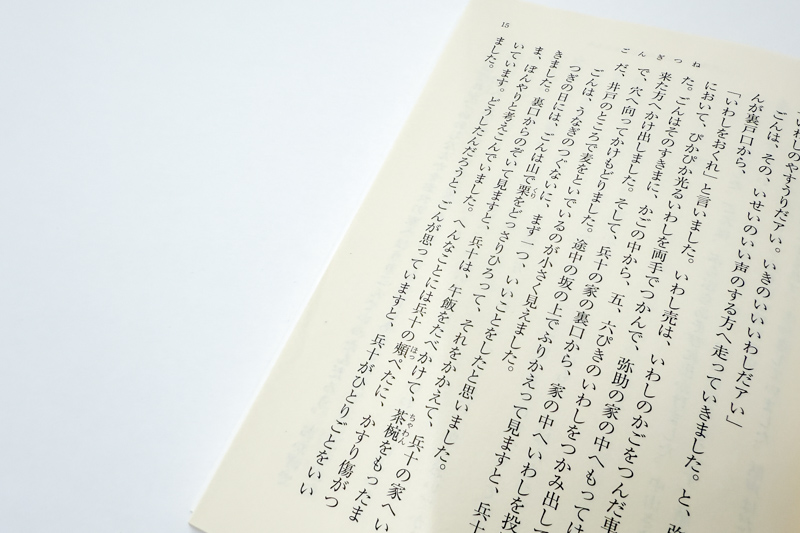 15
ごんぎつね
いわしのやすうりだァい。いきのいいいわしだァい」
ごんは、その、いせいのいい声のする方へ走っていきました。と、弥
んが裏戸口から、
「いわしをおくれ」と言いました。いわし売は、いわしのかごをつんだ車
において、ぴかぴか光るいわしを両手でつかんで、弥助の家の中へもっては
た。ごんはそのすきまに、かごの中から、五、六ぴきのいわしをつかみ出して
来た方へかけ出しました。そして、兵十の家の裏口から、家の中へいわしを投
で、穴へ向ってかけもどりました。途中の坂の上でふりかえって見ますと、兵十
だ、井戸のところで麦をといでいるのが小さく見えました。
ごんは、うなぎのつぐないに、まず一つ、いいことをしたと思いました。
つぎの日には、ごんは山で栗をどっさりひろって、それをかかえて、兵十の家へい
きました。裏口からのぞいて見ますと、兵十は、午飯をたべかけて、茶椀をもったま
ま、ぼんやりと考えこんでいました。へんなことには兵十の頬ぺたに、かすり傷がつ
いています。どうしたんだろうと、ごんが思っていますと、兵十がひとりごとをいい
ました。